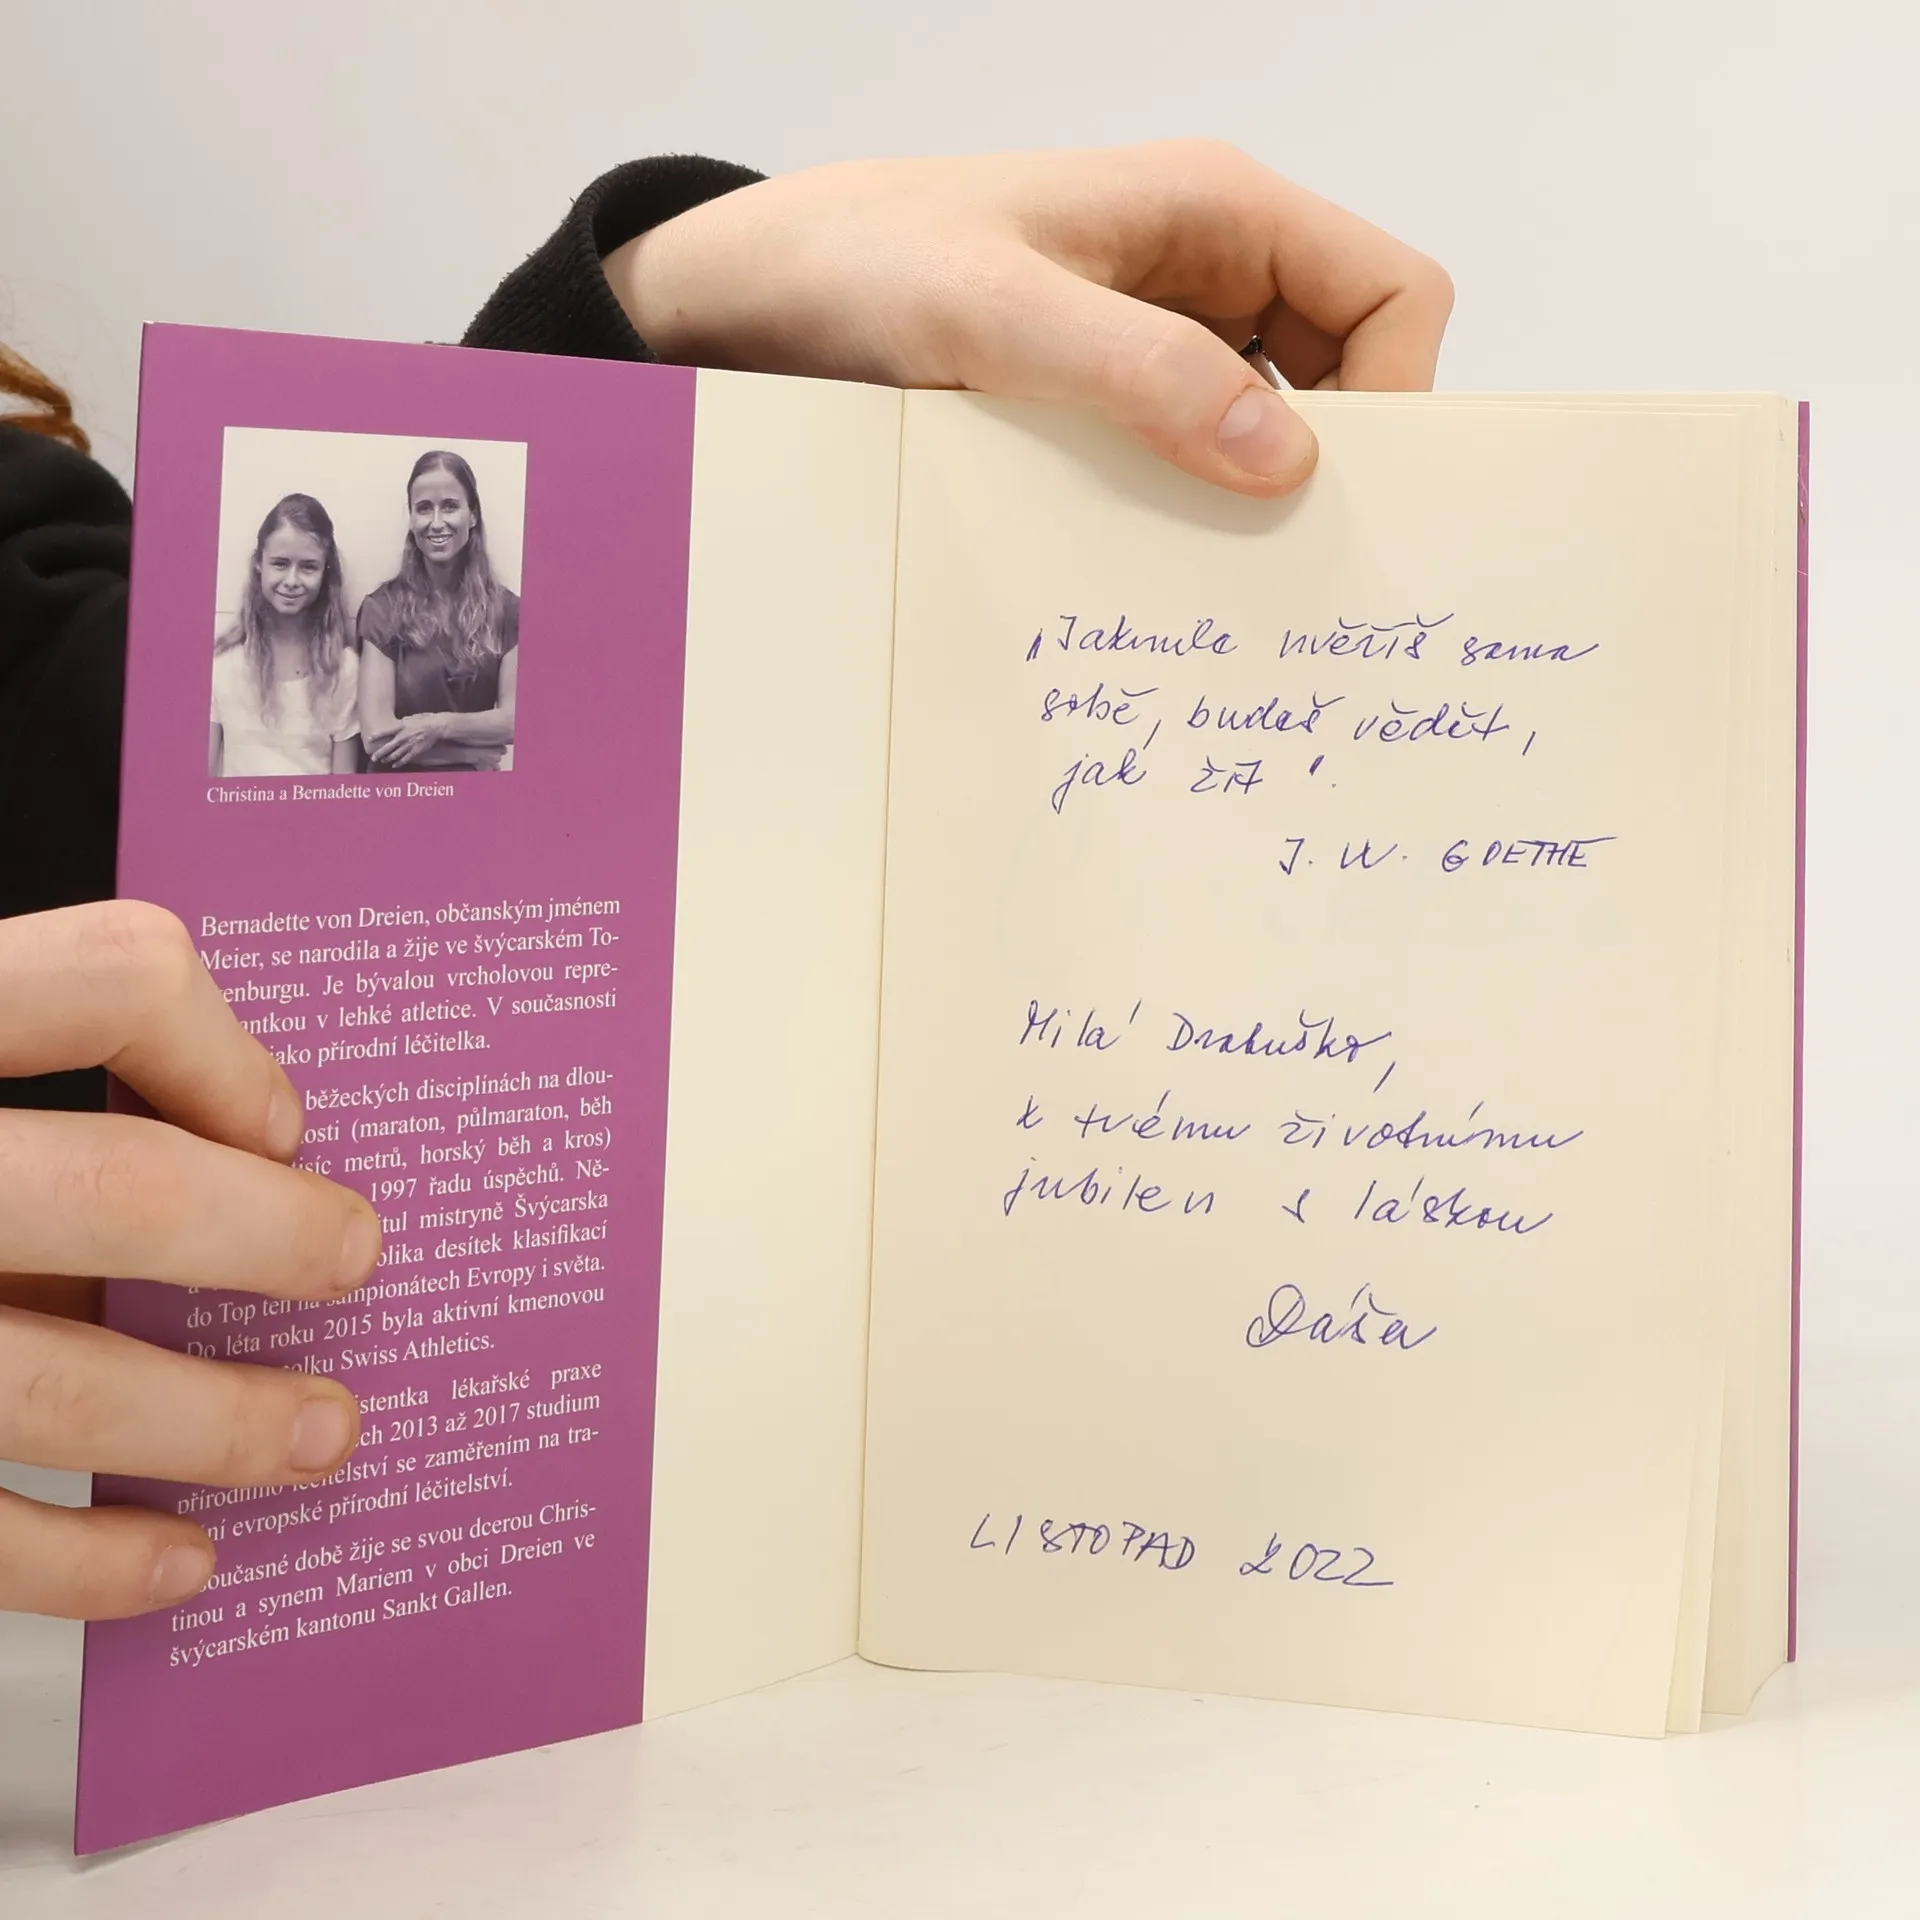 Christina a Bernadette von Dreien
Bernadette von Dreien, občanským jménem
Meier, se narodila a žije ve švýcarském To-
enburgu. Je bývalou vrcholovou repre-
antkou v lehké atletice. V současnosti
jako přírodní léčitelka.
běžeckých disciplínách na dlou-
osti (maraton, půlmaraton, běh
isíc metrů, horský běh a kros)
1997 řadu úspěchů. Ně-
itul mistryně Švýcarska
olika desítek klasifikací
do Top ten na ampionátech Evropy i světa.
Do léta roku 2015 byla aktivní kmenovou
olku Swiss Athletics.
istentka lékařské praxe
ech 2013 až 2017 studium
přírodního léčitelství se zaměřením na tra-
ní evropské přírodní léčitelství.
současné době žije se svou dcerou Chris-
tinou a synem Mariem v obci Dreien ve
švýcarském kantonu Sankt Gallen.
„Jakmile uvěříš sama
sobě, budeš vědět,
jak žít".
J. W. GOETHE
Milá Drabuško,
k tvému životnímu
jubileu s láskou
Dáša
LISTOPAD 2022